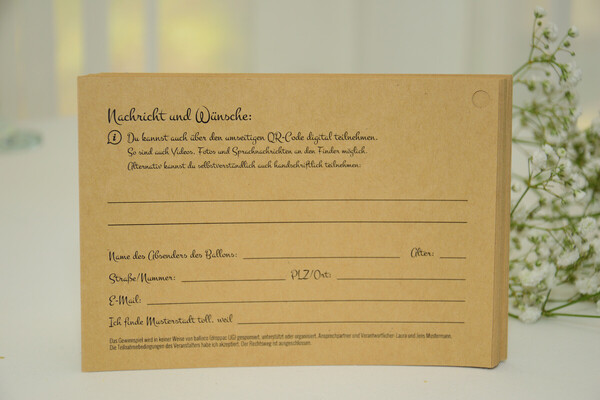 Nachricht und Wünsche:
i Du kannst auch über den umseitigen QR-Code digital teilnehmen.
So sind auch Videos, Fotos und Sprachnachrichten an den Finder möglich.
Alternativ kannst du selbstverständlich auch handschriftlich teilnehmen:
Name des Absenders des Ballons: Alter:
Straße/Nummer: PLZ/Ort:
E-Mail:
Ich finde Musterstadt toll, weil
Das Gewinnspiel wird in keiner Weise von balloco (stripzac UG) gesponsert, unterstützt oder organisiert. Ansprechpartner und Verantwortlicher: Laura und Jens Mustermann.
Die Teilnahmebedingungen des Veranstalters habe ich akzeptiert. Der Rechtsweg ist ausgeschlossen.